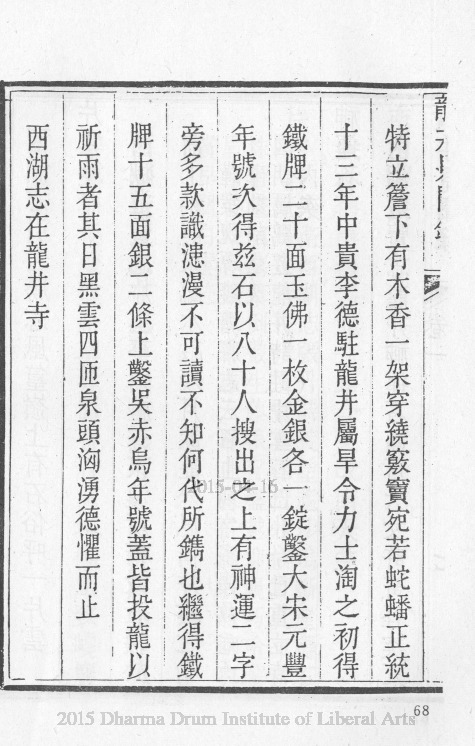 龍井見聞錄
特立簷下有木香一架穿繞竅竇宛若蛇蟠正統
十三年中貴李德駐龍井屬旱令力士淘之初得
鐵牌二十面玉佛一枚金銀各一錠鑿大宋元豐
年號次得茲石以八十人搜出之上有神運二字
旁多款識漶漫不可讀不知何代所鐫也繼得鐵
牌十五面銀二條上鑿吳赤烏年號蓋皆投龍以
祈雨者其日黑雲四匝泉頭洶湧德懼而止
西湖志在龍井寺
2015-04-16
68
2015 Dharma Drum Institute of Liberal Arts